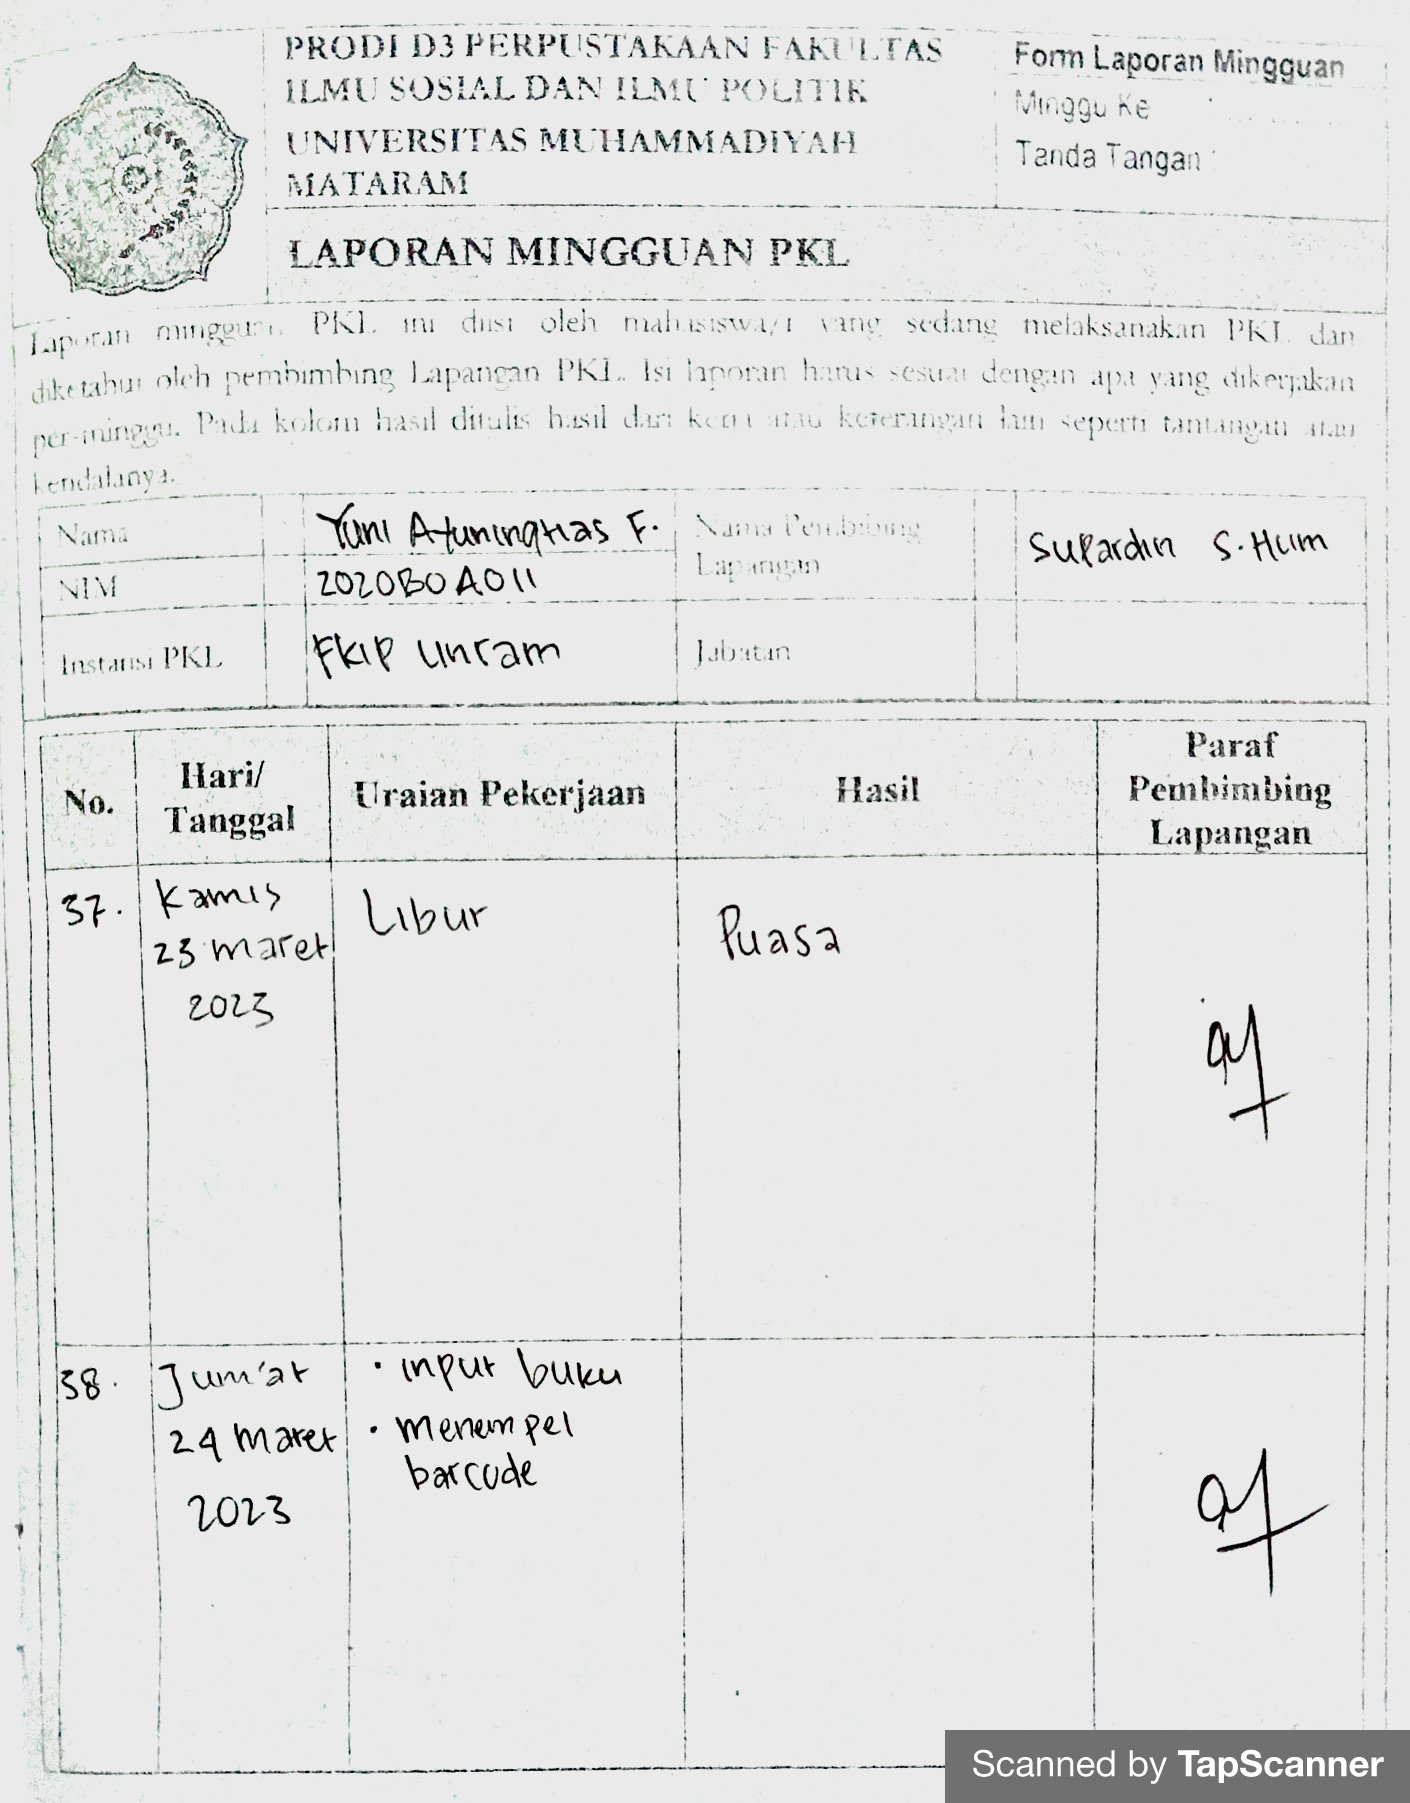 PRODI D3 PERPUSTAKAAN FAKULTAS
ILMU SOSIAL DAN ILMU POLITIK
UNIVERSITAS MUHAMMADIYAH
MATARAM
Form Laporan Mingguan
Minggu Ke : ..........
Tanda Tangan :
LAPORAN MINGGUAN PKL
Laporan mingguan PKL ini diisi oleh mahasiswa/i yang sedang melaksanakan PKL dan
diketahui oleh pembimbing Lapangan PKL. Isi laporan harus sesuai dengan apa yang dikerjakan
per-minggu. Pada kolom hasil ditulis hasil dari kerja atau keterangan lain seperti tantangan atau
kendalanya.
Nama
Yuni F.
Nama Pembibing
Lapangan
Supardin S.Hum
NIM
2020B0A011
Instansi PKL
FKIP Unram
Jabatan
No.
Hari/
Tanggal
Uraian Pekerjaan
Hasil
Paraf
Pembimbing
Lapangan
37.
Kamis
23 maret
2023
Libur
Puasa
38.
Jum'at
24 maret
2023
• input buku
• menempel
barcode
Scanned by TapScanner